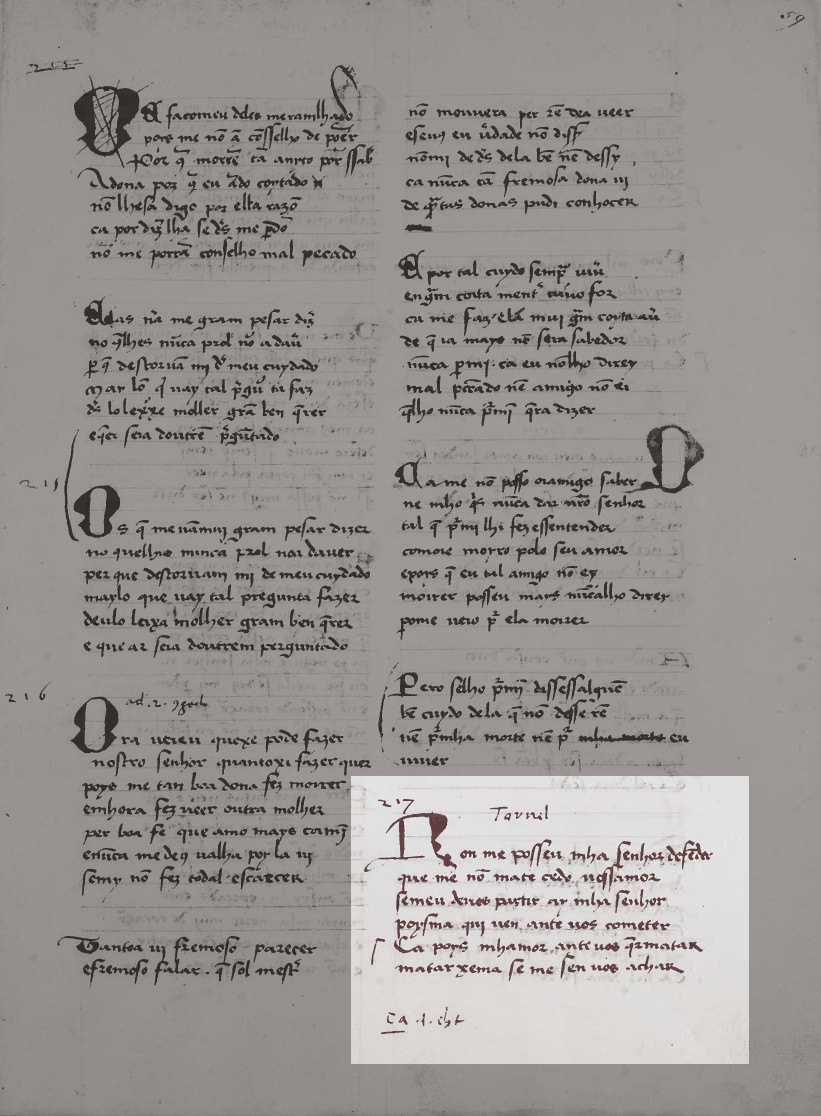 59
215
A facomeu deles meramlhado
poys me nõ a cõsselho de poẽr
Por q̃ moirẽ
A dona por q̃ eu ando coytado
nõ lhesa digo por ella razõ
ca por diz lha se ds̃ me ꝑdõ
nõ me porrã conselho mal pecado
Mas nõ me gram pesar diz̃
no q̃lhes nũca prol
ꝑ q̃ destoruã mi meu cuydado
uay tal p̃gũta faz
ds̃ lo leixe moller grã ben q̃rer
seia doutrẽ p̃gũtado
215
Os q̃ me uã muj gram pesar dizer
no quelhis nunca prol nõ a dauer
per que destoruam mi de meu cuydado
maylo que uay tal pregunta fazer
deulo leixa molher gram ben q̃rer
e que ar seia doutrem perguntado
216
Ora ueieu quexe pode fazer
nostro senhor quantoxi fazer quer
poys me tan boa dona fez moirer
emhora fez ueer outra molher
per boa fe que amo mays ca mĩ
enũca me deꝰ ualha poi la ui
semy nõ fez todal escaecer
Tantoa ui fremoso parecer
efremoso falar . q̃ sol
nõ mouuera per rẽ dea ueer
eseuꝰ eu ũdade nõ diss
nõmi de ds̃ dela bẽ nẽ dessy
ca nũca tã fremosa dona ui
de q̃ntas donas pudi conhocer
E por tal cuydo semp̃
en grã coita
ca me faz ela mui grã coyta
de q̃ ia mays nõ seia sabedor
nunca ꝑ mi . ca eu nõlho direy
mal nẽ amigo nõ ei
q̃lho nũca p̃ mĩ q̃ira dizer
Ca me nõ posso oiamigo saber
ne mho q̃s nũca dar nr̃o senhor
tal q̃ p̃ mi lhi fezessentender
comoie moyro polo seu amor
epoys q̃ eu tal amigo nõ ey
moirer posseu mays nũcalho direy
pome ueio p̃ ela moirer
Pero selho p̃ mĩ dissessalguẽ
bẽ cuydo dela q̃ nõ desse rẽ
nẽ p̃ mha morte nẽ p̃ mha morte eu
uiuer
217
Tornel
Ron me posseu mha senhor defẽder
que me nõ mate cedo uossamor
semeu deuos partir ar mha senhor
poysma qui uen ante uos cometer
Ca poys mhamor ante uos q̃r matar
matarxema se me sen uos achar